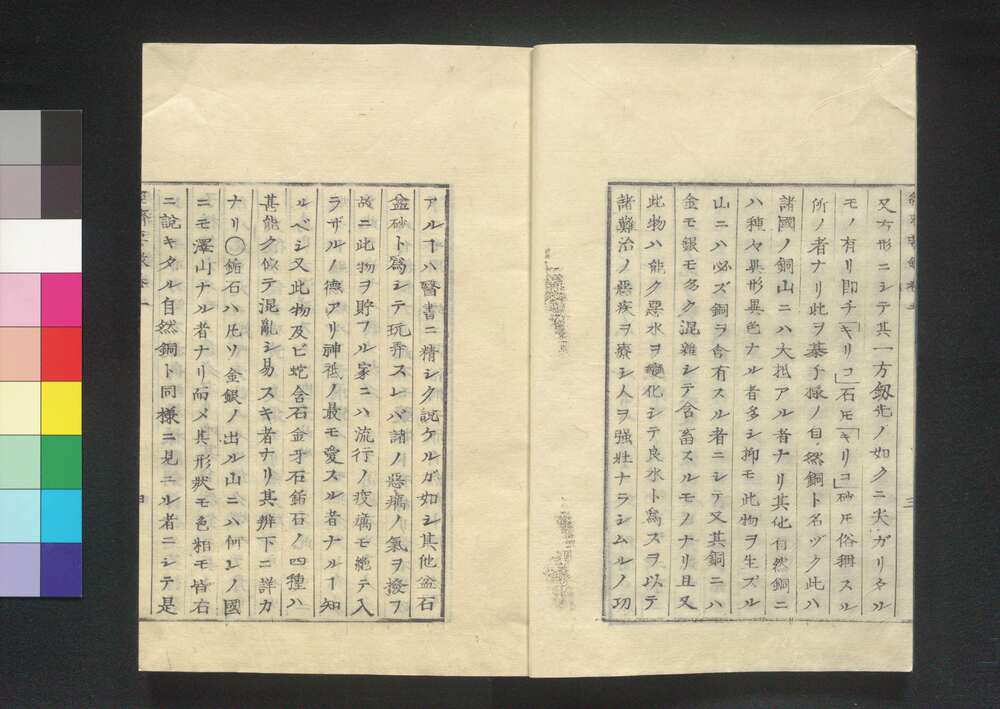 又方形ニシテ其一方剱先ノ如クニ尖ガリタル
モノ有リ即チ「キリコ」石モ「キリコ」砂ト俗稱スル
所ノ者ナリ此ヲ碁子樣ノ自然銅ト名ヅク此ハ
諸國ノ銅山ニハ大抵アル者ナリ其他自然銅ニ
ハ種々異形異色ナル者多シ抑モ此物ヲ生ズル
山ニハ必ズ銅ヲ含有スル者ニシテ又其銅ニハ
金モ銀モ多ク混雜シテ含畜スルモノナリ且又
此物ハ能ク惡水ヲ變化シテ良水ト爲スヲ以テ
諸難治ノ惡疾ヲ療シ人ヲ强壯ナラシムルノ功
アルヿハ醫書ニ精シク說ケルガ如シ其他盆石
盆砂ト爲シテ玩弄スレバ諸ノ惡癘ノ氣ヲ撥フ
故ニ此物ヲ貯フル家ニハ流行ノ疫癘モ絶テ入
ラザルノ德アリ神祇ノ最モ愛スル者ナルヿ知
ルベシ又此物及ビ蛇含石金牙石鍮石ノ四種ハ
甚能ク似テ混亂シ易スキ者ナリ其辨下ニ詳カ
ナリ〇鍮石ハ凡ソ金銀ノ出ル山ニハ何レノ國
ニモ澤山ナル者ナリ而メ其形狀モ色相モ皆右
ニ說キタル自然銅ト同樣ニ見ユル者ニシテ是